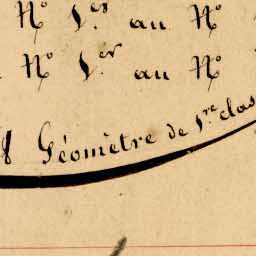 N° 1er au N°
N° 1er au N°
Géomètre de 1re clas